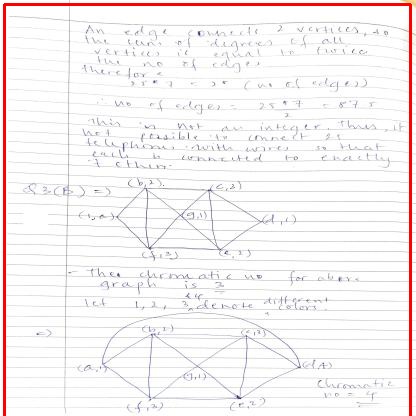 An edge connects 2 vertices, so
the sum of degrees of all
vertices is equal to twice
the no of edges
therefore
25*7 = 2* (no of edges)
∴ no of edges = 25*7 / 2 = 87.5
This is not an integer. Thus, it
not possible to connect 25
telephones with wires so that
each is connected to exactly
7 others.
Q3(B) =>
(b,2) (c,3)
(1,a) (g,1) (d,1)
(f,3) (e,2)
- The chromatic no for above
graph is 3
let 1, 2, 3 & 4 denote different colors.
=>
(b,2) (c,3)
(a,1) (g,1) (d,4)
(f,3) (e,2)
Chromatic
no = 4